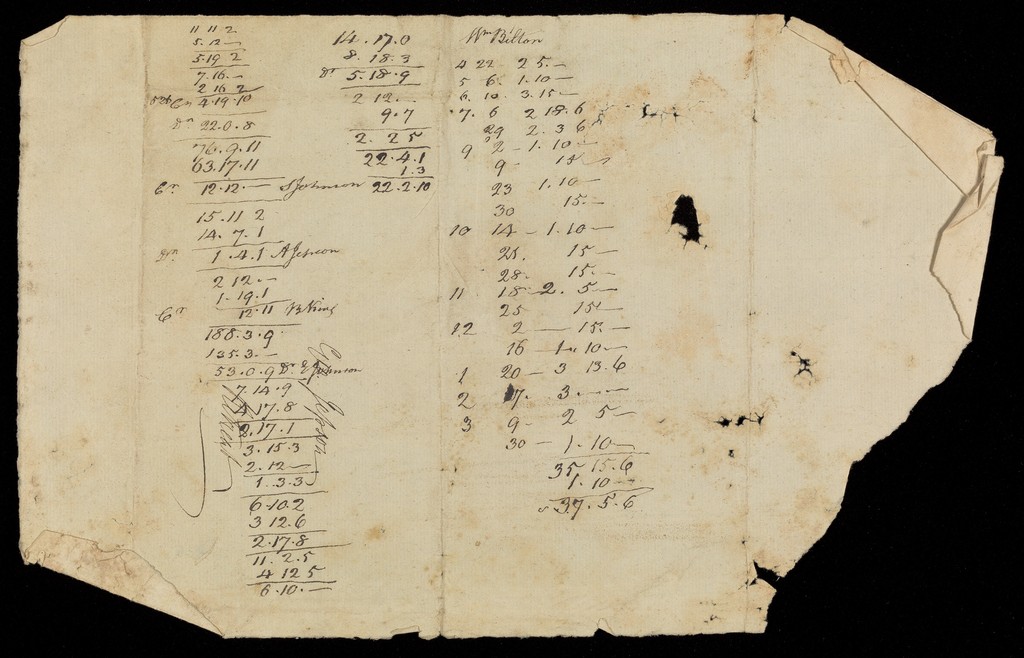 11 11 2
5. 12 —
5. 19 2
7. 16. —
2 16 2
Cr 4. 19. 10
Dr 22. 0. 8
76. 9. 11
63. 17. 11
Cr 12. 12. — S Johnson
15. 11 2
14. 7. 1
Dr 1. 4. 1 A Jepson
2 12. —
1. 19. 1
Cr 12. 11 B King
188. 3. 9
135. 3. —
53. 0. 9 Dr E Johnson
7. 14. 9
4. 17. 8
2. 17. 1
3. 15. 3
2. 12 —
1. 3. 3
6. 10. 2
3 12. 6
2. 17. 8
11. 2. 5
4 12 5
6. 10. —
Jepson
14. 17. 0
8. 18. 3
Dr 5. 18. 9
2 12. —
9. 7
2. 2 5
22. 4. 1
1. 3
22. 2. 10
Wm Bilton
4 22 2 5. —
5 6. 1. 10 —
6. 10. 3. 15 —
7. 6 2 18. 6
29 2. 3 6
9 2 — 1. 10 —
9 — 15 —
23 1. 10 —
30 15. —
10 14 — 1. 10 —
21. 15 —
28. 15. —
11 18 — 2. 5 —
25 15. —
12 2 — 15. —
16 — 1. 10 —
1 20 — 3 13. 6
2 17. 3. —
3 9 — 2 5 —
30 — 1. 10 —
35 15. 6
1. 10 —
37. 5. 6